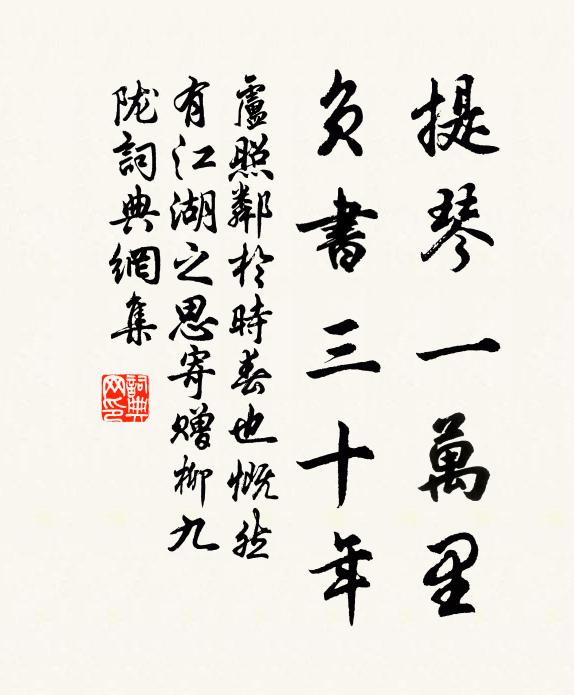 提琴一萬里
負書三十年
盧照鄰於時春也慨然
有江湖之思寄贈柳九
陇詞典網集
詞典網印